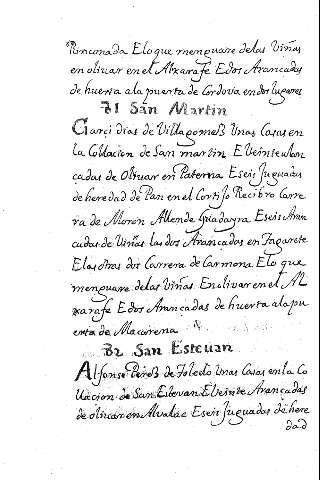 Rinconada Elo que menguare delas Viñas
en olivar en el Alxarafe Edos Arancadas
de huerta ala puerta de Cordova en dos lugares
71 San Martin
Garçi dias de Villagomeß Unas Casas en
la Collacion de San martin E Veinte Aran
cadas de Olivar en Paterna E seis Juguadas
de heredad de Pan en el Cortijo Recibro Carre
ra de Moron Allende Guadayra E seis Aran
cadas de Viñas las dos Arancadas en Tagarete
E las otras dos Carrera de Carmona E lo que
menguare delas Viñas. En olivar en el Al
xarafe E dos Arancadas de huerta ala pu
erta de Macarena
72 San Estevan
Alfonso Pereß de Toledo Unas Casas en la Co
llacion de San Estevan E Veinte Arancadas
de olivar en Alvalac E seis Juguadas de here
dad